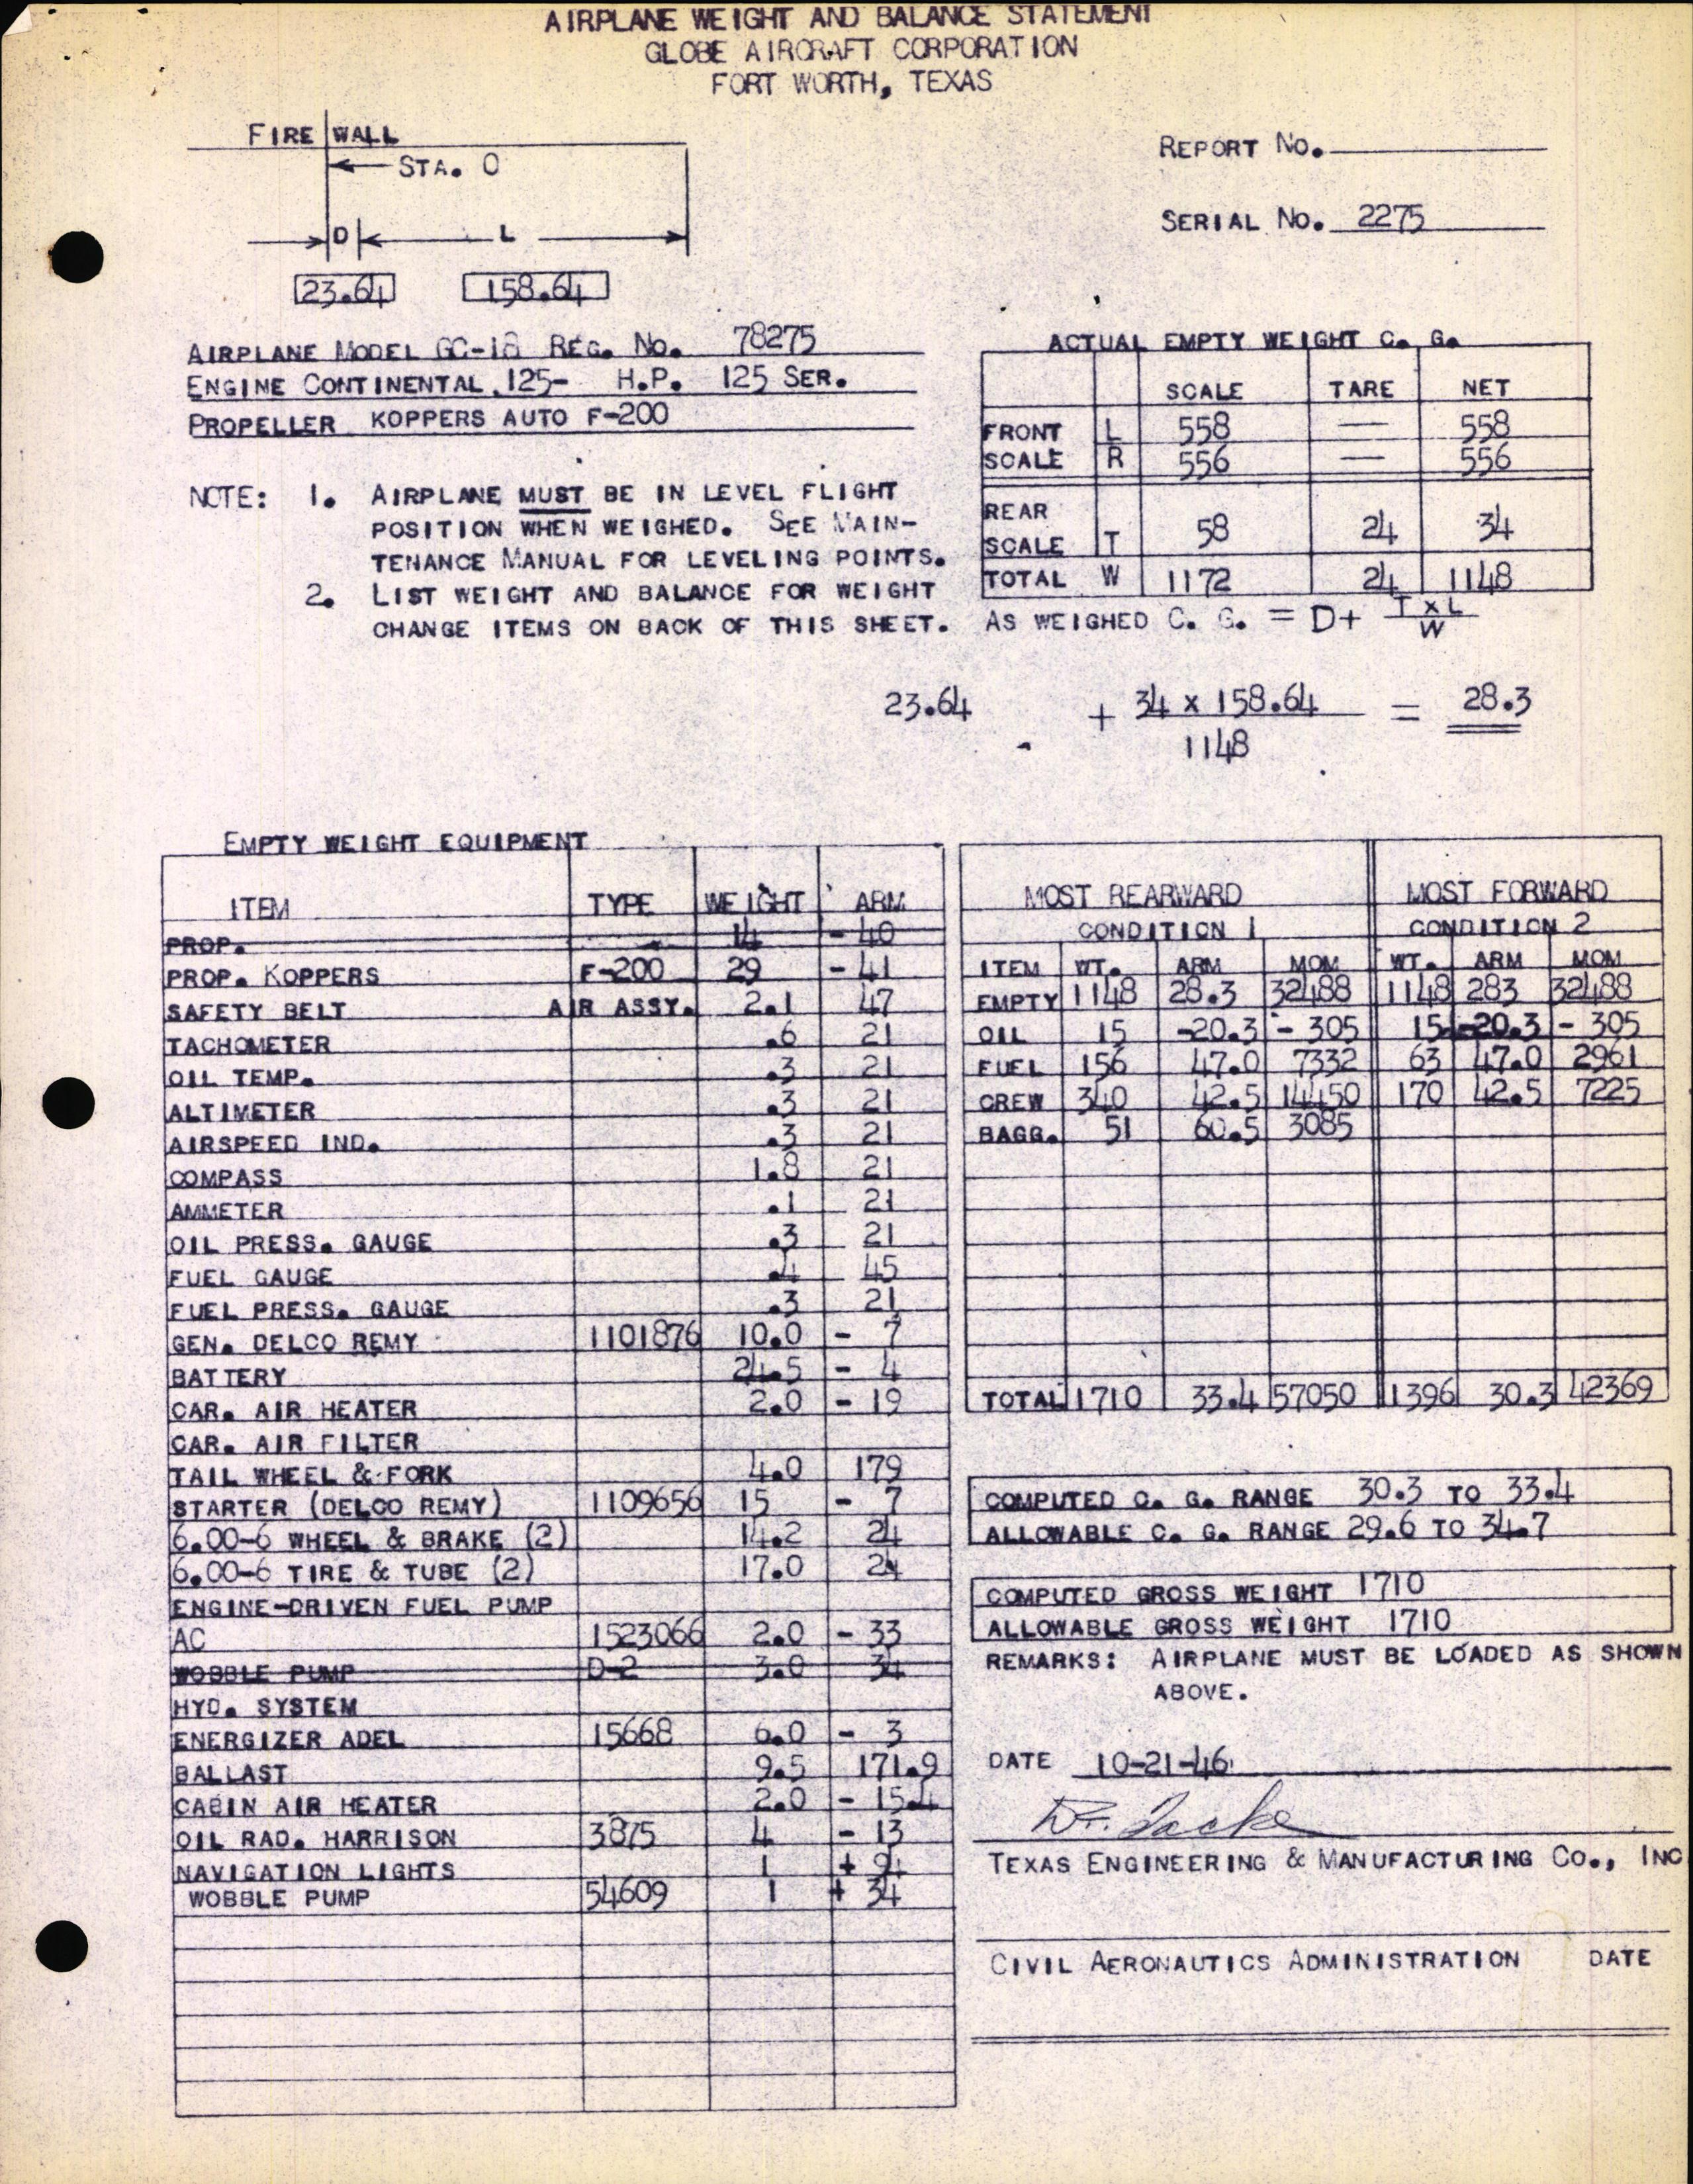 AIRPLANE WEIGHT AND BALANCE STATEMENT
GLOBE AIRCRAFT CORPORATION
FORT WORTH, TEXAS
FIRE WALL
STA. 0
D L
23.64 158.64
REPORT NO.
SERIAL NO. 2275
AIRPLANE MODEL GC-1B REG. NO. 78275
ENGINE CONTINENTAL 125- H.P. 125 SER.
PROPELLER KOPPERS AUTO F-200
NOTE: 1. AIRPLANE MUST BE IN LEVEL FLIGHT
POSITION WHEN WEIGHED. SEE MAIN-
TENANCE MANUAL FOR LEVELING POINTS.
2. LIST WEIGHT AND BALANCE FOR WEIGHT
CHANGE ITEMS ON BACK OF THIS SHEET.
ACTUAL EMPTY WEIGHT C. G.
SCALE TARE NET
FRONT L 558 — 558
SCALE R 556 — 556
REAR
SCALE T 58 24 34
TOTAL W 1172 24 1148
AS WEIGHED C. G. = D+ T x L
W
23.64 + 34 x 158.64 = 28.3
1148
EMPTY WEIGHT EQUIPMENT
ITEM TYPE WEIGHT ARM
PROP. 14 - 40
PROP. KOPPERS F-200 29 - 41
SAFETY BELT AIR ASSY. 2.1 47
TACHOMETER .6 21
OIL TEMP. .3 21
ALTIMETER .3 21
AIRSPEED IND. .3 21
COMPASS 1.8 21
AMMETER .1 21
OIL PRESS. GAUGE .3 21
FUEL GAUGE .4 45
FUEL PRESS. GAUGE .3 21
GEN. DELCO REMY 1101876 10.0 - 7
BATTERY 24.5 - 4
CAR. AIR HEATER 2.0 - 19
CAR. AIR FILTER
TAIL WHEEL & FORK 4.0 179
STARTER (DELCO REMY) 1109656 15 - 7
6.00-6 WHEEL & BRAKE (2) 14.2 24
6.00-6 TIRE & TUBE (2) 17.0 24
ENGINE-DRIVEN FUEL PUMP
AC 1523066 2.0 - 33
WOBBLE PUMP D-2 3.0 34
HYD. SYSTEM
ENERGIZER ADEL 15668 6.0 - 3
BALLAST 9.5 171.9
CABIN AIR HEATER 2.0 - 15.4
OIL RAD. HARRISON 3875 4 - 13
NAVIGATION LIGHTS 1 +
WOBBLE PUMP 54609 1 + 34
MOST REARWARD MOST FORWARD
CONDITION 1 CONDITION 2
ITEM WT. ARM MOM WT. ARM MOM
EMPTY 1148 28.3 32488 1148 283 32488
OIL 15 -20.3 - 305 15 -20.3 - 305
FUEL 156 47.0 7332 63 47.0 2961
CREW 340 42.5 14450 170 42.5 7225
BAGG. 51 60.5 3085
TOTAL 1710 33.4 57050 1396 30.3 42369
COMPUTED C. G. RANGE 30.3 TO 33.4
ALLOWABLE C. G. RANGE 29.6 TO 34.7
COMPUTED GROSS WEIGHT 1710
ALLOWABLE GROSS WEIGHT 1710
REMARKS: AIRPLANE MUST BE LOADED AS SHOWN
ABOVE.
DATE 10-21-46
TEXAS ENGINEERING & MANUFACTURING CO., INC
CIVIL AERONAUTICS ADMINISTRATION DATE